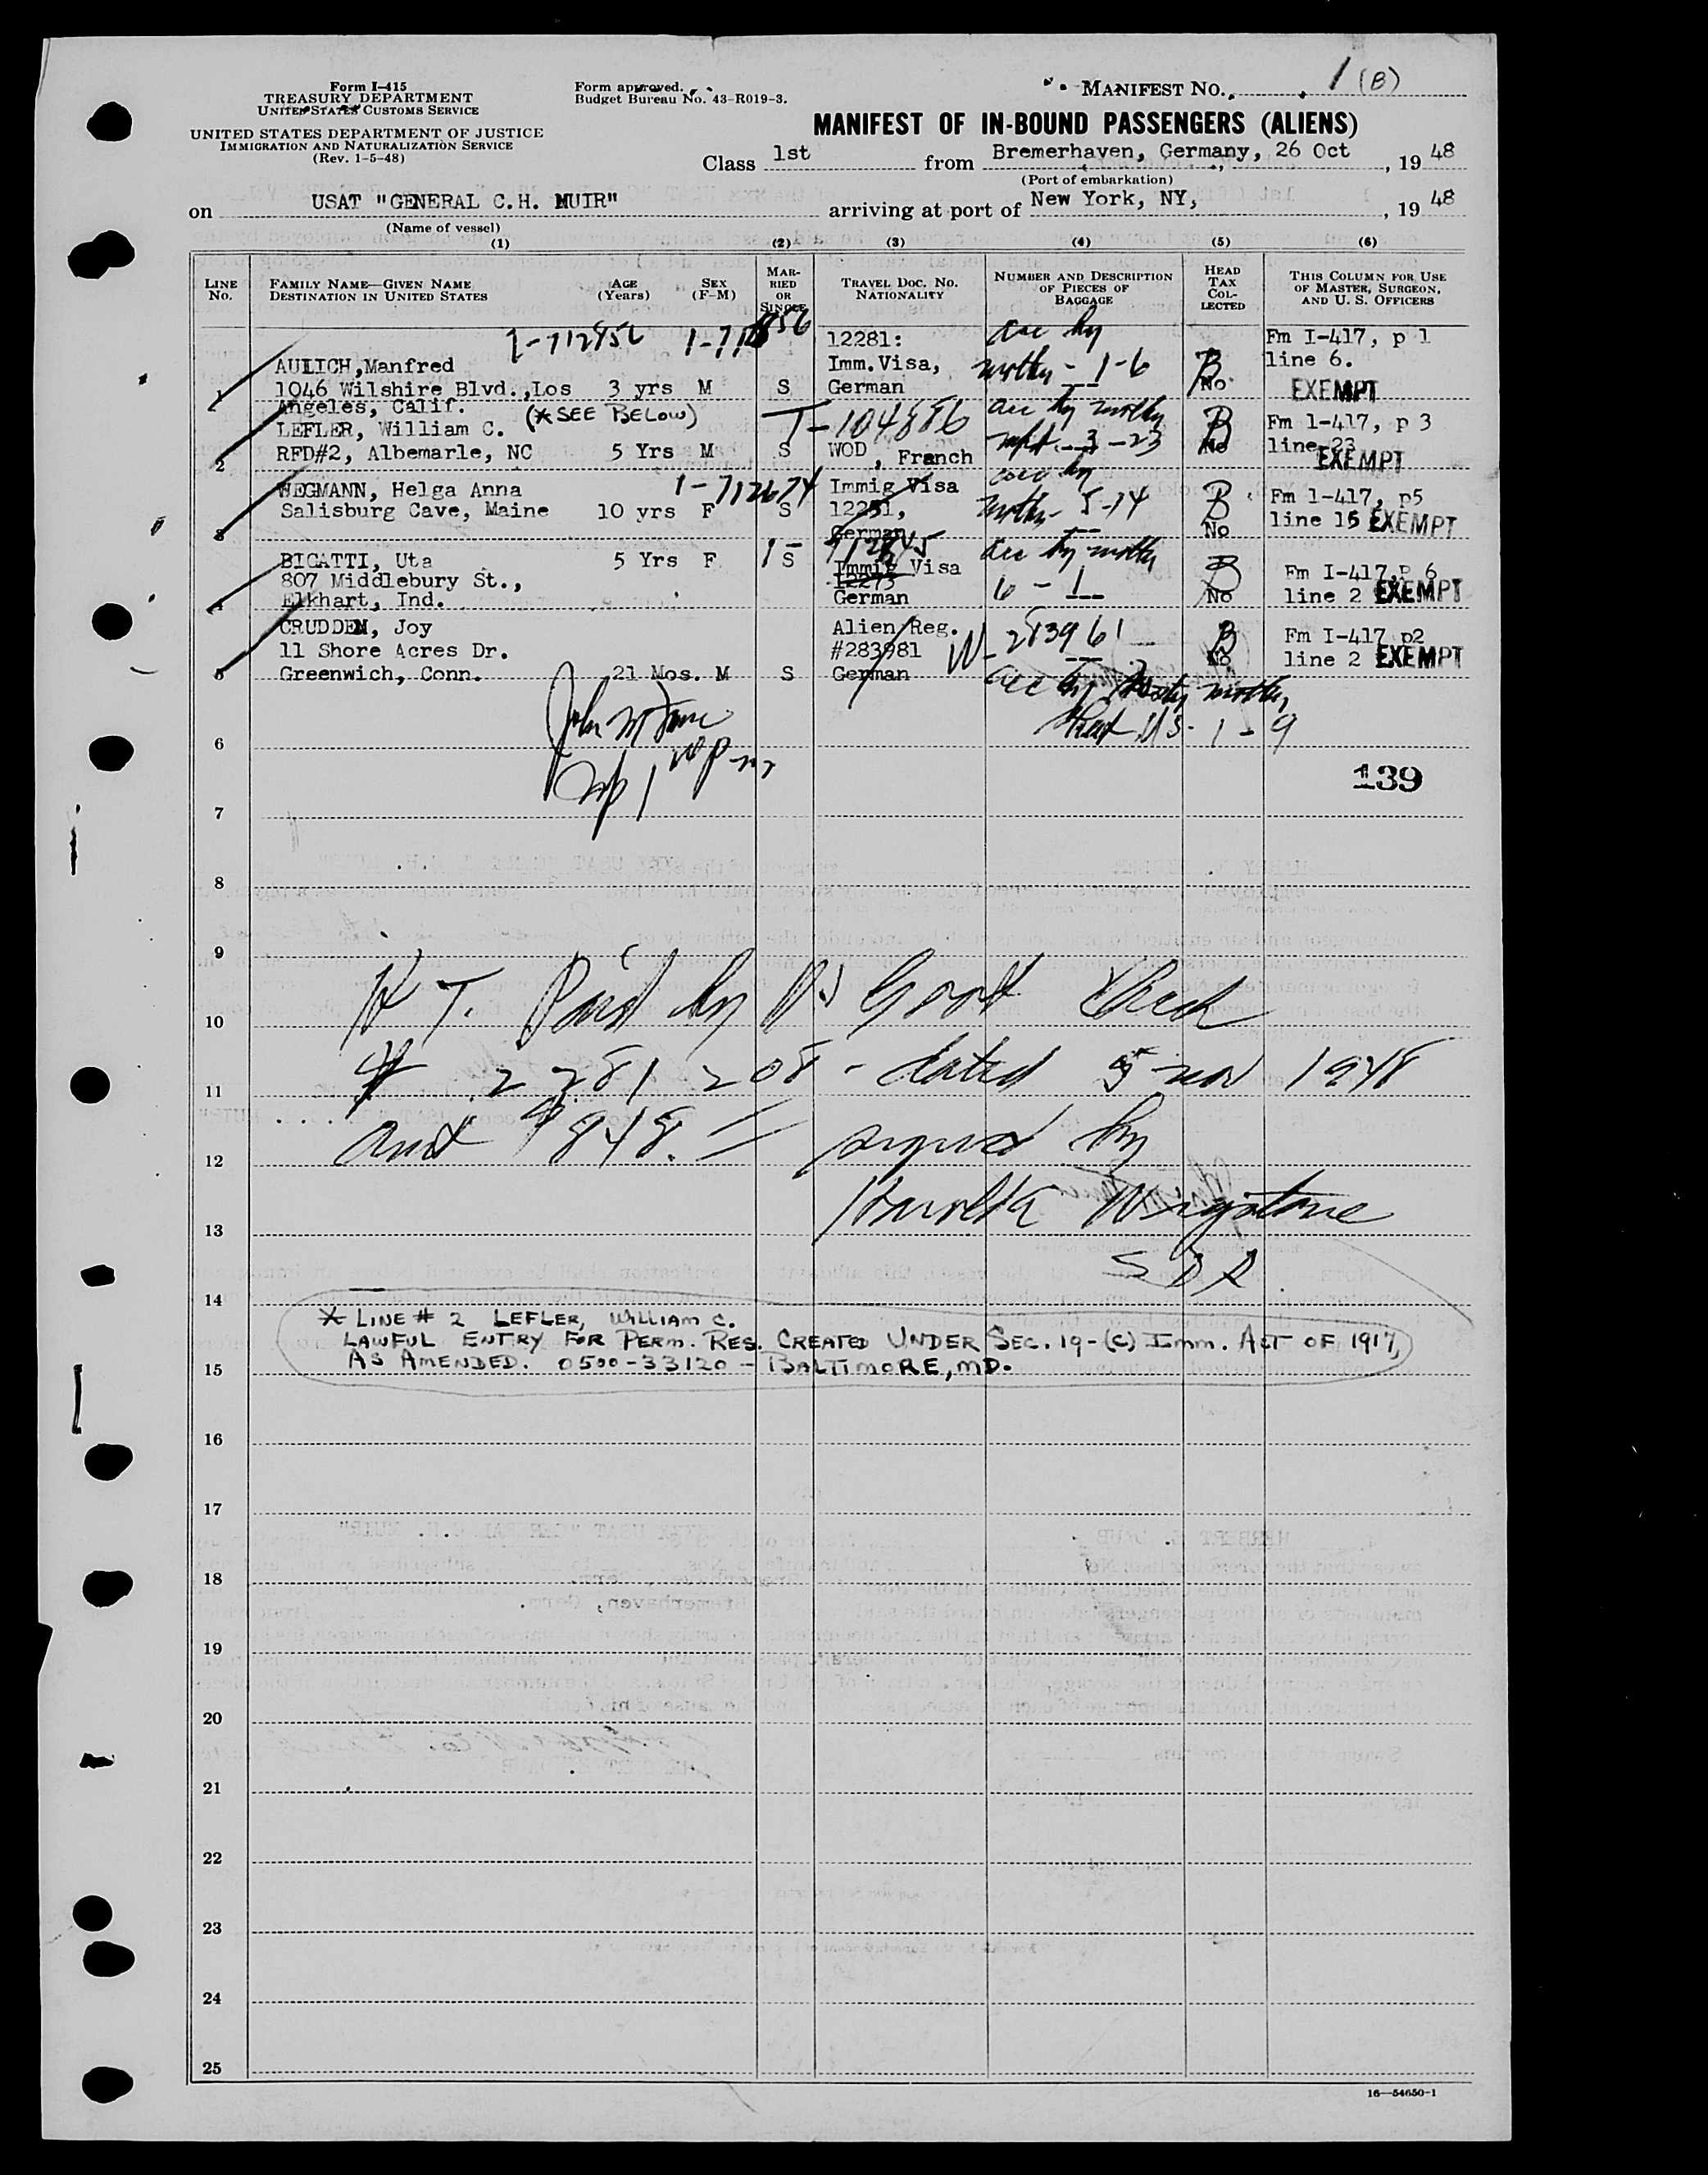 Form I-415
TREASURY DEPARTMENT
UNITED STATES CUSTOMS SERVICE
UNITED STATES DEPARTMENT OF JUSTICE
IMMIGRATION AND NATURALIZATION SERVICE
(Rev. 1-5-48)
Form approved.
Budget Bureau No. 43-R019-3.
MANIFEST NO. 1 (B)
MANIFEST OF IN-BOUND PASSENGERS (ALIENS)
Class 1st from Bremerhaven, Germany, 26 Oct, 19 48
(Port of embarkation)
on USAT "GENERAL C.H. MUIR" arriving at port of New York, NY, , 19 48
(Name of vessel)
(1) (2) (3) (4) (5) (6)
LINE No. FAMILY NAME—GIVEN NAME DESTINATION IN UNITED STATES AGE (Years) SEX (F-M) MARRIED OR SINGLE TRAVEL DOC. NO. NATIONALITY NUMBER AND DESCRIPTION OF PIECES OF BAGGAGE HEAD TAX COLLECTED THIS COLUMN FOR USE OF MASTER, SURGEON, AND U. S. OFFICERS
1-712856 12281: acc by Fm I-417, p 1
AULICH,Manfred Imm.Visa, mother - 1-6 B line 6.
1 1046 Wilshire Blvd.,Los 3 yrs M S German --- No EXEMPT
Angeles, Calif. (* SEE BELOW) T-104886 acc by mother B Fm 1-417, p 3
LEFLER, William C. 3-23
2 RFD#2, Albemarle, NC 5 Yrs M S WOD, Franch No line 23 EXEMPT
WEGMANN, Helga Anna 1-712674 Immig Visa acc by B Fm 1-417, p5
Salisburg Cave, Maine 10 yrs F S 12251, mother 5-14 line 15 EXEMPT
3 German --- No
BIGATTI, Uta 5 Yrs F S 1-712845 acc by mother
807 Middlebury St., Immig Visa B Fm I-417,P 6
12273 6-1
4 Elkhart, Ind. German --- No line 2 EXEMPT
CRUDDEN, Joy Alien Reg. B Fm I-417 p2
11 Shore Acres Dr. #283981 --- No line 2 EXEMPT
5 Greenwich, Conn. 21 Mos. M S German
acc by mother
1-9
6
139
7
8
9
H T. Paid by US Govt Check
10
# 2281208 - dated 5 Nov 1948
11
amt $848. = signed by
12
13
14
* LINE # 2 LEFLER, WILLIAM C.
LAWFUL ENTRY FOR PERM. RES. CREATED UNDER SEC. 19-(C) IMM. ACT OF 1917,
AS AMENDED. 0500-33120 - BALTIMORE, MD.
15
16
17
18
19
20
21
22
23
24
25
16—54650-1